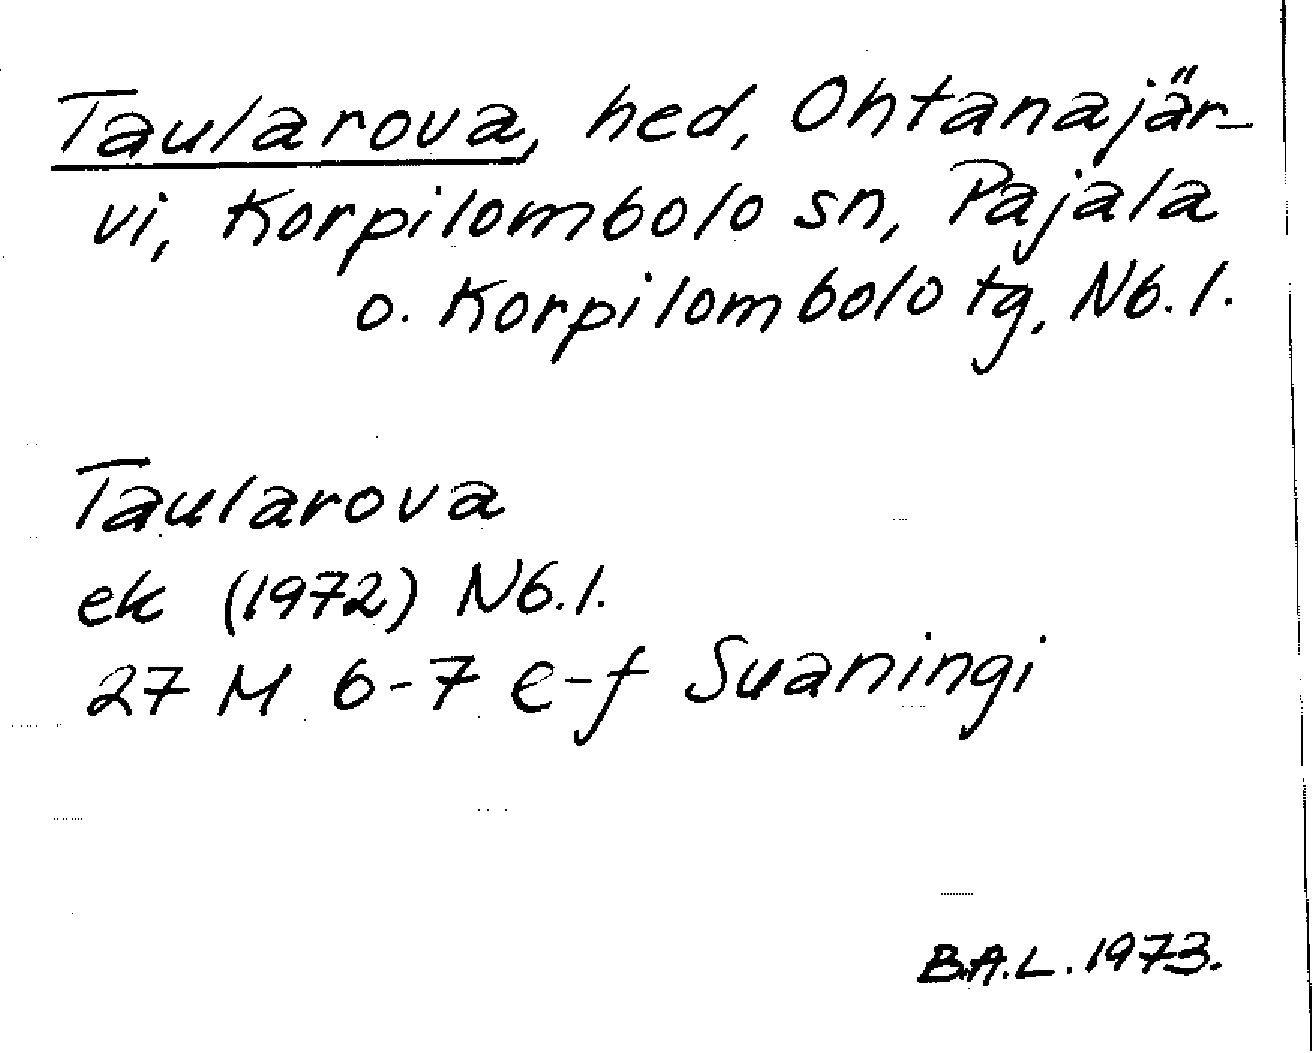 Taularova, hed, Ohtanajär-
vi, Korpilombolo sn, Pajala
o. Korpilombolo tg, Nb. l.
Taularova
ek (1972) Nb. l.
27 M 6-7 e-f Suaningi
B.A.L. 1973.